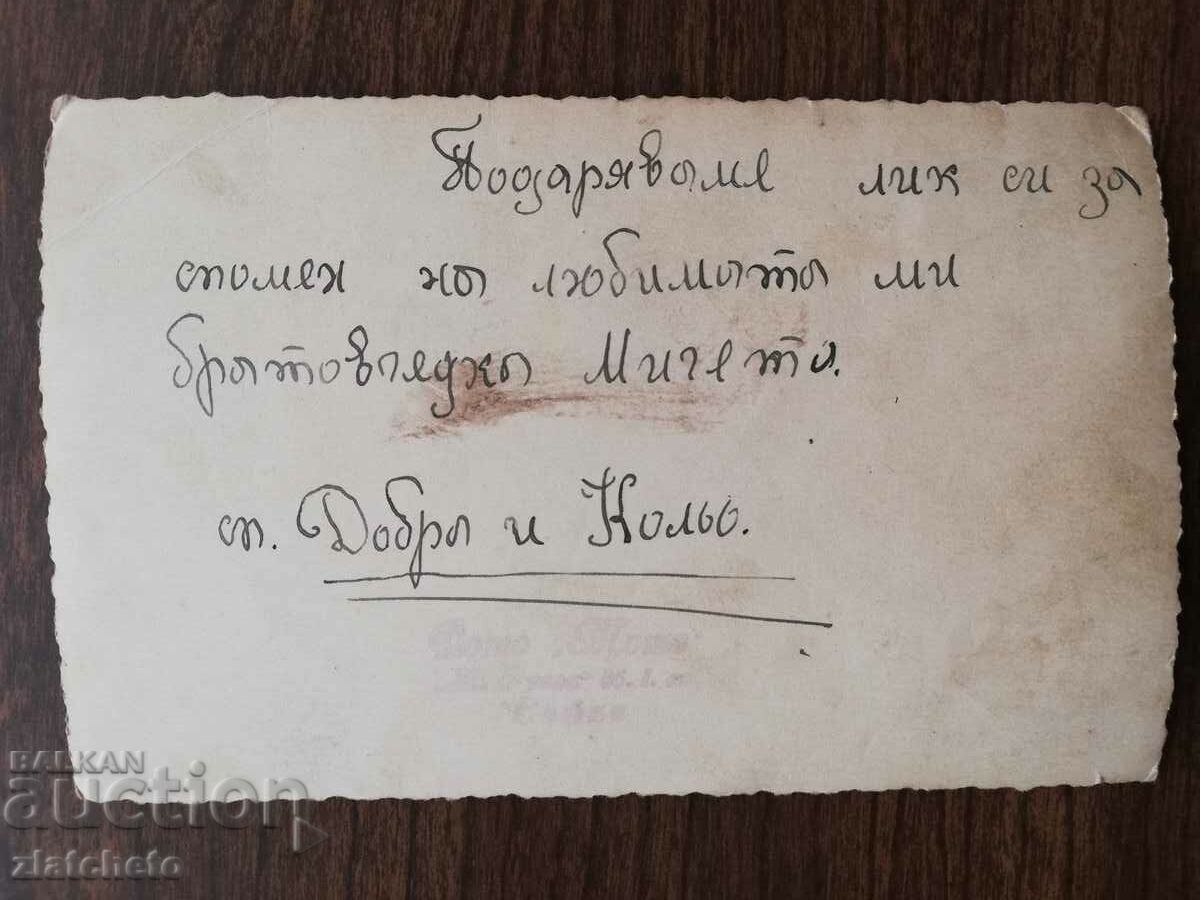 Подарявame лик си за
спомен на любимата ми
братовчедка Мичето.
от. Добри и Кольо.
Фото
София
BALKAN
auction
zlatcheto